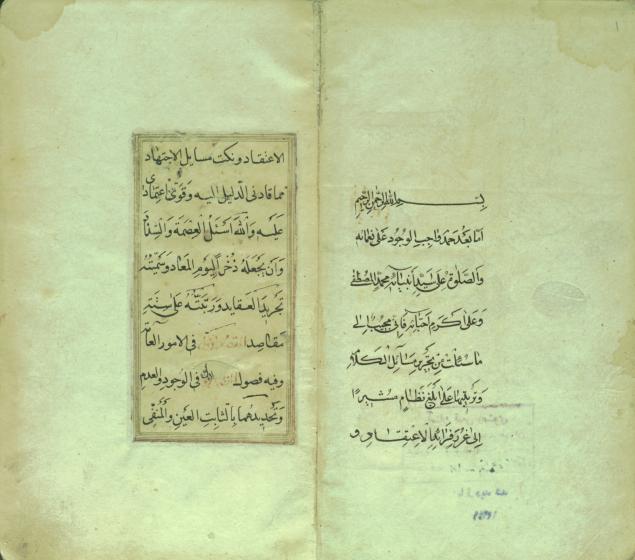 بسم الله الرحمن الرحيم
اما بعد حمد واجب الوجود على نعمائه
والصلوة على سيد انبيائه محمد المصطفى
وعلى اكرم احبائه فانى مجيب الى
ما سئلت من تحرير مسائل الكلام
وترتيبها على ابلغ نظام مشيرا
الى غرر فرائد الاعتقاد و
الاعتقاد ونكت مسايل الاجتهاد
مما قادنى الدليل اليه وقوى اعتمادى
عليه والله اسئل العصمة والسداد
وان يجعله ذخرا ليوم المعاد وسميته
تجريد العقايد ورتبته على ستة
مقاصد المقصد الاول فى الامور العامة
وفيه فصول الاول فى الوجود والعدم
وتحديدهما بالثابت العين والمنفى